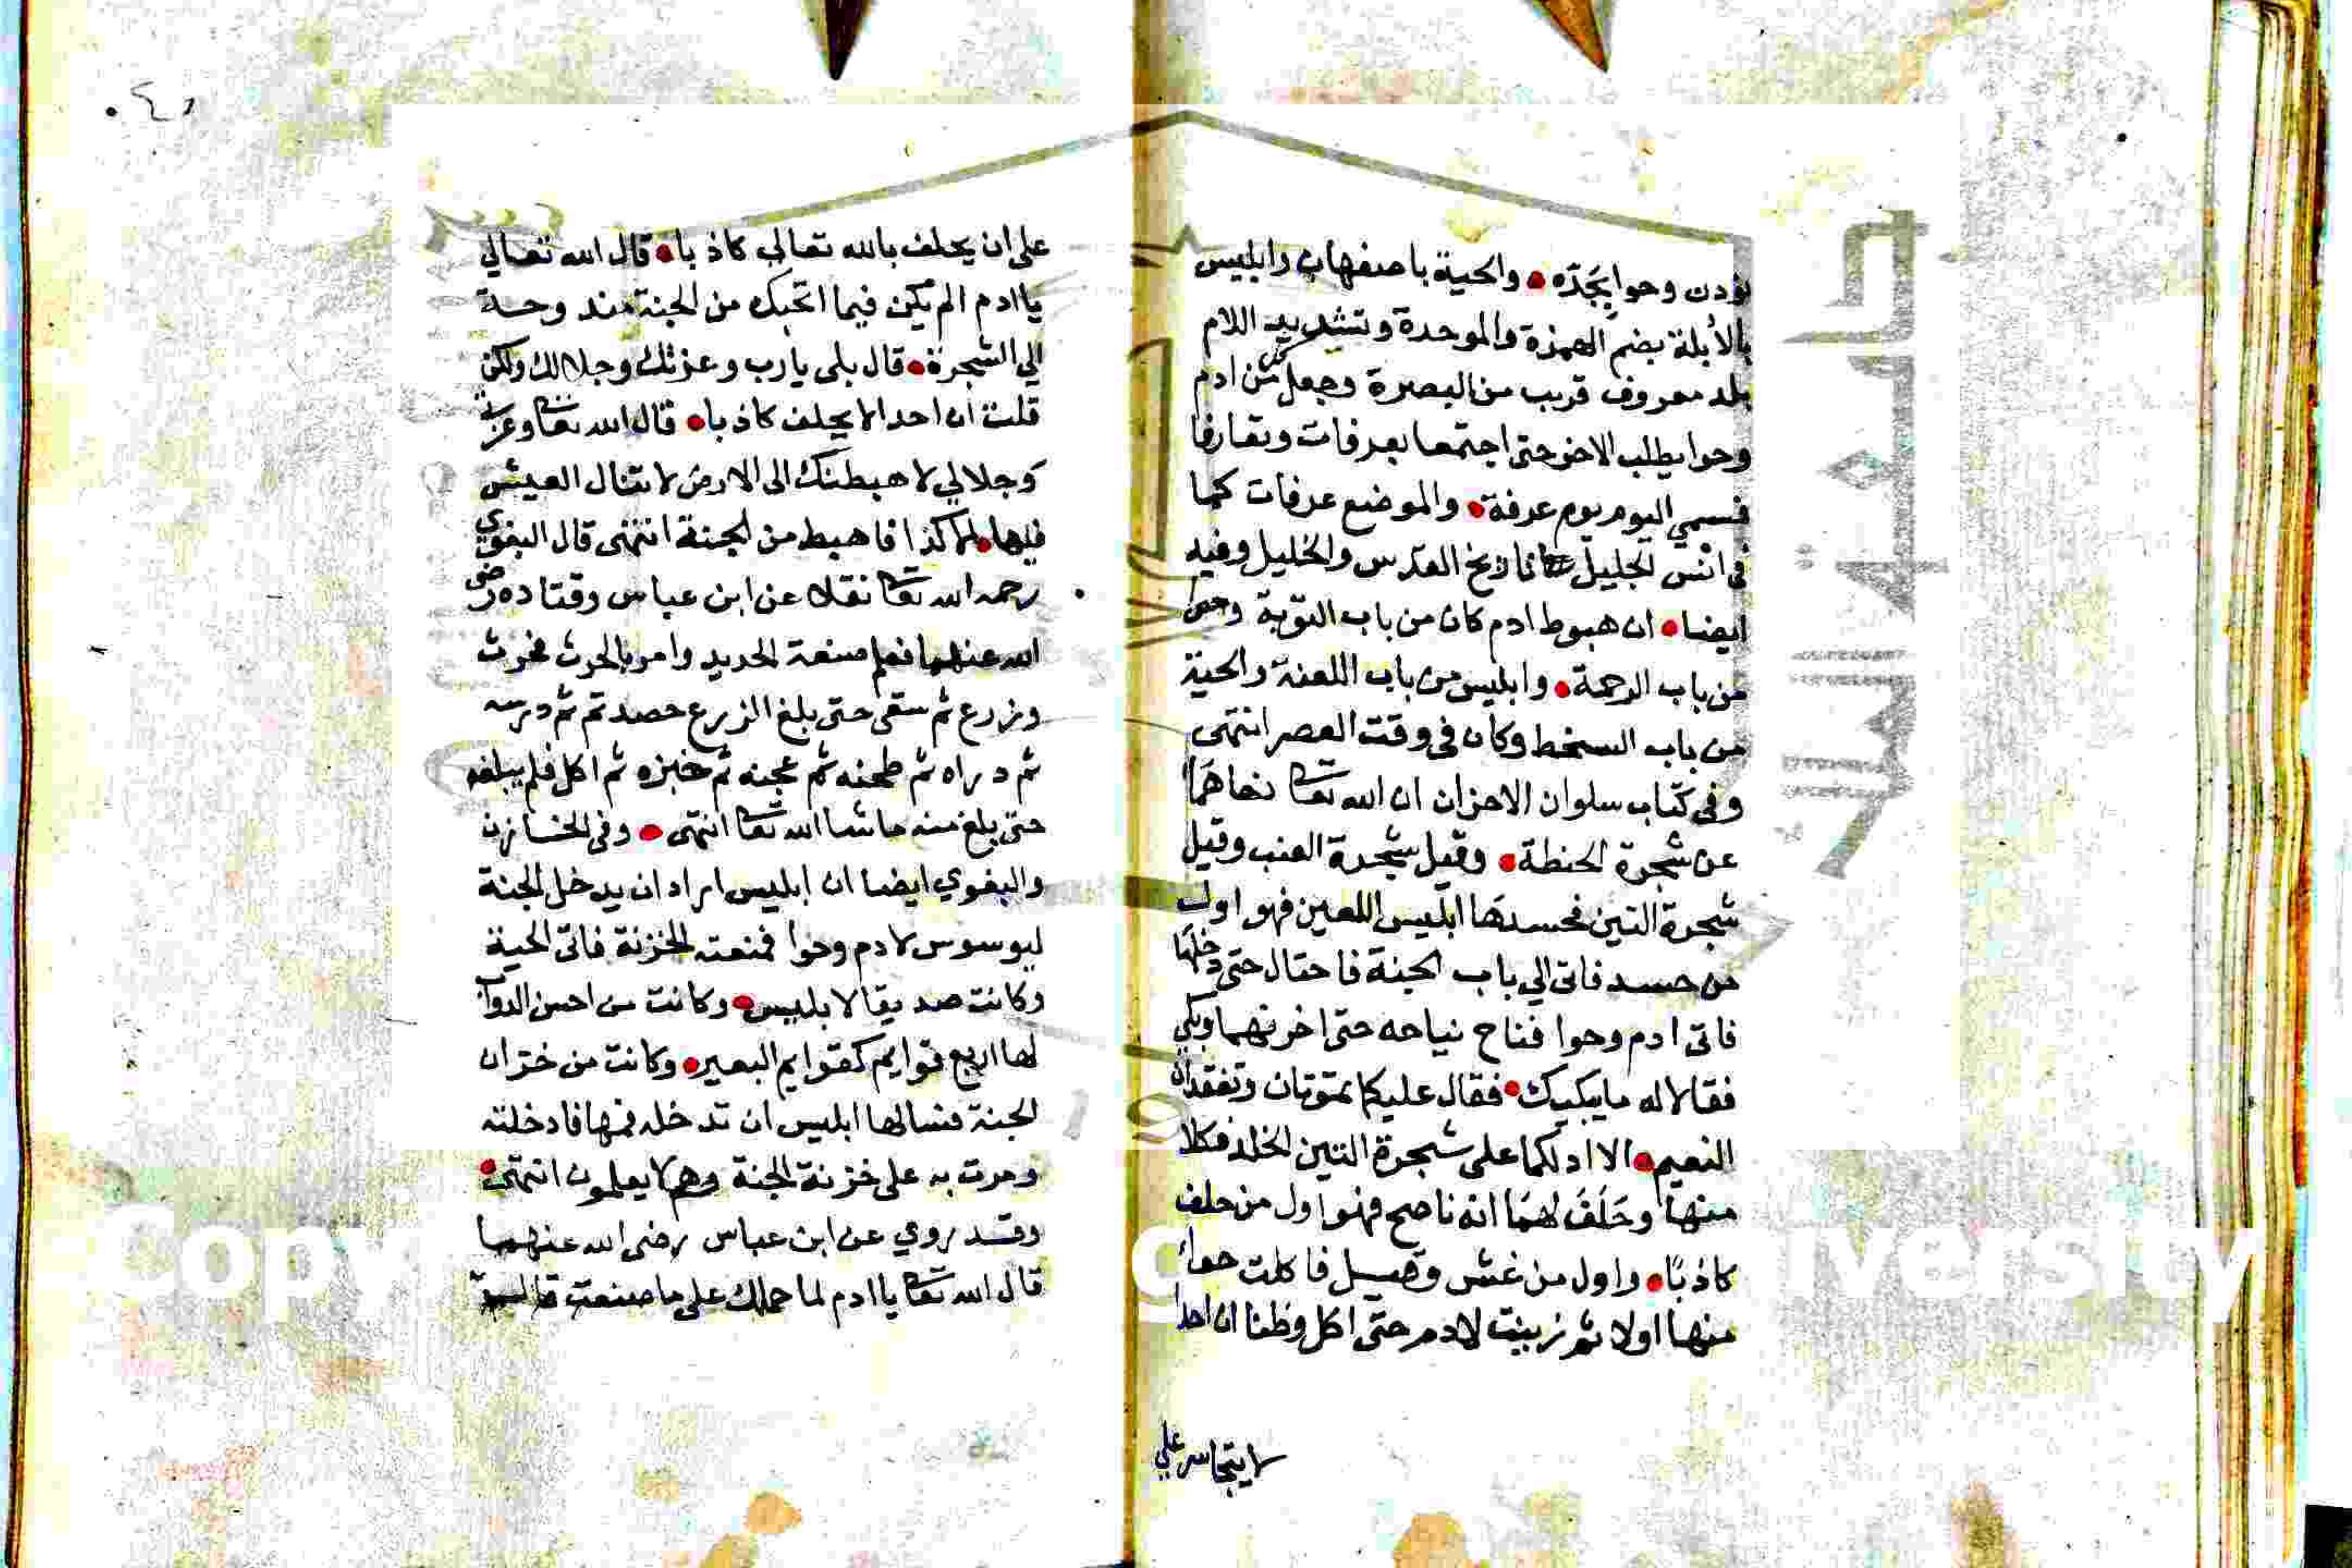 نودن وحوا بجَدّه والحية باصفهان وابليس
بالأبلة بضم الهمزة والموحدة وتشديد اللام
بلد معروف قريب من البصرة وجعل كل من ادم
وحوا يطلب الاخر حتى اجتمعا بعرفات وتعارفا
فسمي اليوم يوم عرفة والموضع عرفات كما
في انس الجليل تاريخ القدس والخليل وفيه
ايضا ان هبوط ادم كان من باب التوبة وحوا
من باب الرحمة وابليس من باب اللعنة والحية
من باب السخط وكان في وقت العصر انتهى
وفي كتاب سلوان الاحزان ان الله تعا نهاهما
عن شجرة الحنطة وقيل شجرة العنب وقيل
شجرة التين فحسدها ابليس اللعين فهو اول
من حسد فاتى الي باب الجنة فاحتال حتى دخلها
فاتى ادم وحوا فناح نياحه حتى احزنهما وبكي
فقالا له ما يبكيك فقال عليكما تموتان وتفقدان
النعيم الا ادلكما على شجرة التين الخلد فكلا
منها وحَلَفَ لهمَا انه ناصح فهو اول من حلف
كاذبًا واول من غش وقيل فاكلت حواء
منها اولا ثم زينت لادم حتى اكل وظنا ان احدا
لا يتجاسر علي
على ان يحلف بالله تعالي كاذبا قال الله تعالي
يا ادم الم يكن فيما ابحتك من الجنة مندوحة
الي الشجرة قال بلى يا رب وعزتك وجلالك ولكن
قلت ان احدا لا يحلف كاذبا قال الله تعا وعزتي
وجلالي لاهبطنك الى الارض لا تنال العيش
فيها الا كدا فاهبط من الجنة انتهى قال البغوي
رحمه الله تعا نقلا عن ابن عباس وقتاده رضى
الله عنهما فعلم صنعة الحديد وامر بالحرث فحرث
وزرع ثم سقى حتى بلغ الزرع حصد ثم ثم درسه
ثم دراه ثم طحنه ثم عجنه ثم خبزه ثم اكل فلم يبلغه
حتى بلغ منه ما شا الله تعا انتهى وفى الخازن
والبغوي ايضا ان ابليس اراد ان يدخل الجنة
ليوسوس لادم وحوا فمنعته الخزنة فاتى الحية
وكانت صديقا لابليس وكانت من احسن الدواب
لها اربع قوايم كقوايم البعير وكانت من خزان
الجنة فسالها ابليس ان تدخله فمها فادخلته
ومرت به على خزنة الجنة وهم لا يعلمون انتهى
وقد روي عن ابن عباس رضى الله عنهما
قال الله تعا يا ادم لما حملك على ما صنعت قال